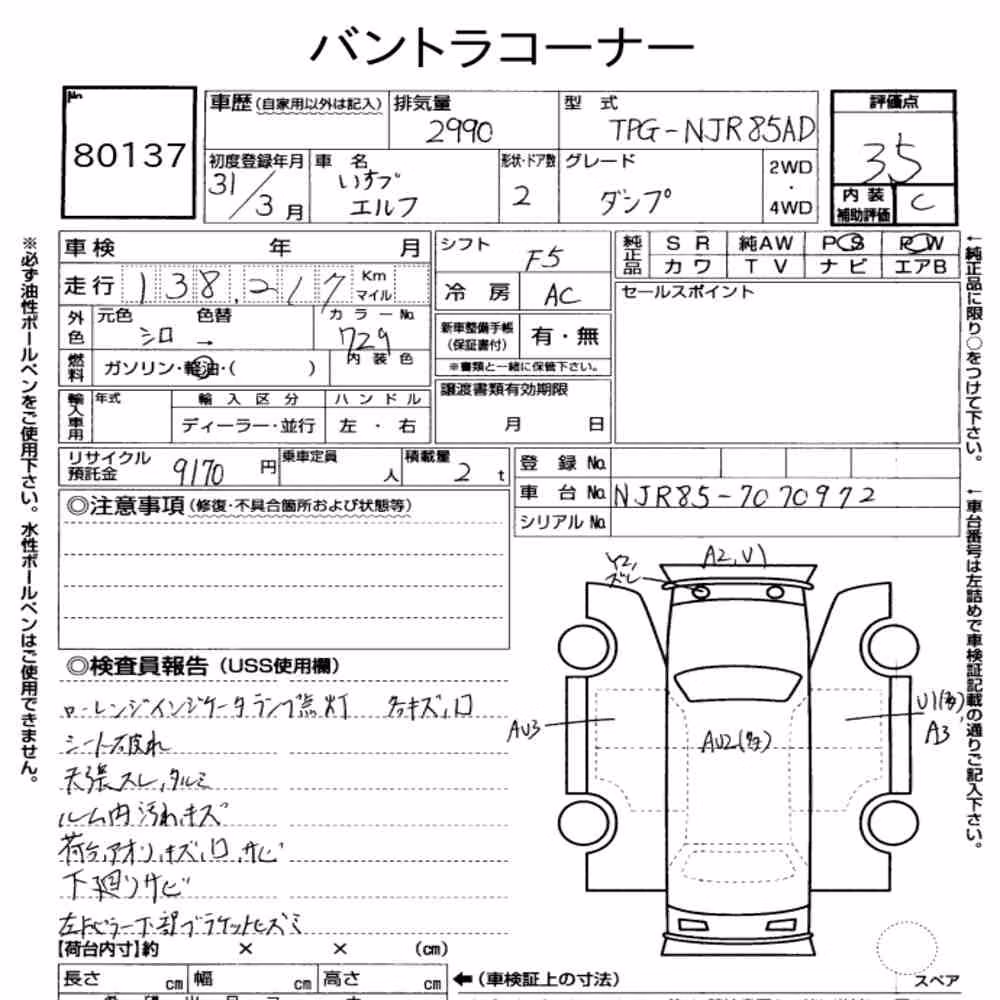 バントラコーナー
№ 80137
車歴 (自家用以外は記入)
排気量 2990
型 式 TPG-NJR85AD
評価点 3.5
初度登録年月 31/3月
車 名 いすゞ エルフ
形状・ドア数 2
グレード ダンプ
2WD ・ 4WD
内装補助評価 C
車検 年 月
シフト F5
純正品 SR 純AW PS PW
カワ TV ナビ エアB
走行 138,217 Km マイル
冷房 AC
セールスポイント
外色 元色 シロ 色替 → カラーNo. 729
新車整備手帳 (保証書付) 有・無
※書類と一緒に保管下さい。
内装色
燃料 ガソリン・軽油・( )
譲渡書類有効期限
月 日
輸入車用 年式 輸入区分 ハンドル
ディーラー・並行 左 ・ 右
リサイクル預託金 9170円
乗車定員 人
積載量 2 t
登録No.
車台No. NJR85-7070972
シリアルNo.
◎注意事項 (修復・不具合箇所および状態等)
◎検査員報告 (USS使用欄)
ローレンジインジケータランプ点灯
シート破れ
天張スレ,タルミ
ルーム内汚れキズ
荷台,アオリ,キズ,凹,サビ
下廻りサビ
左Fピラー下部ブラケットヒズミ
A2,V1
Y2,ズレ
AU3
AU2(多)
U1(多),
A3
【荷台内寸】約 × × (cm)
長さ cm 幅 cm 高さ cm
← (車検証上の寸法)
スペア
※必ず油性ボールペンをご使用下さい。水性ボールペンはご使用できません。
←純正品に限り○をつけて下さい。
←車台番号は左詰めで車検証記載の通りご記入下さい。